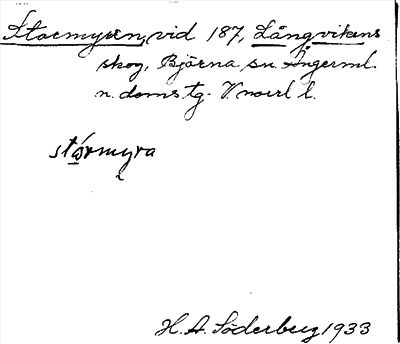 Stormyren, vid 187, Långvikens
skog, Björna sn. Ångerml.
n. doms tg. V norrl l.
stórmyra
H. A. Söderberg 1933